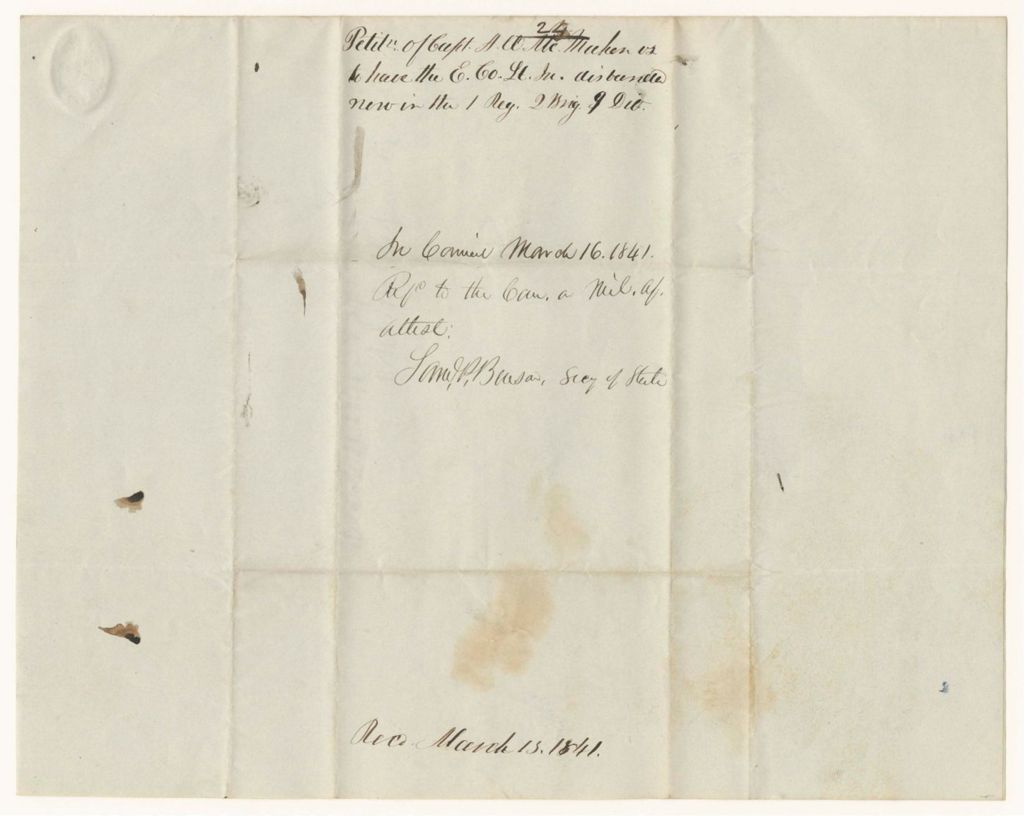 Petitn. of Capt. A. W. Mc Mahon vs
to have the E. Co. Lt. In. disbanded
now in the 1 Reg. 2 Brig. 9 Div.
In Council March 16. 1841.
Refd to the Com. o Mil. Af.
attest:
Saml P. Benson, Secy of State
Recd. March 13. 1841.